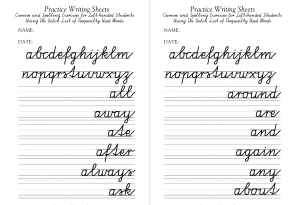 Practice Writing Sheets
Cursive and Spelling Exercises for Left-Handed Students
Using the Dolch List of Frequently Used Words
NAME:
DATE:
abcdefghijklm
nopqrstuvwxyz
all
away
ate
after
always
ask
Practice Writing Sheets
Cursive and Spelling Exercises for Left-Handed Students
Using the Dolch List of Frequently Used Words
NAME:
DATE:
abcdefghijklm
nopqrstuvwxyz
around
are
and
again
any
about